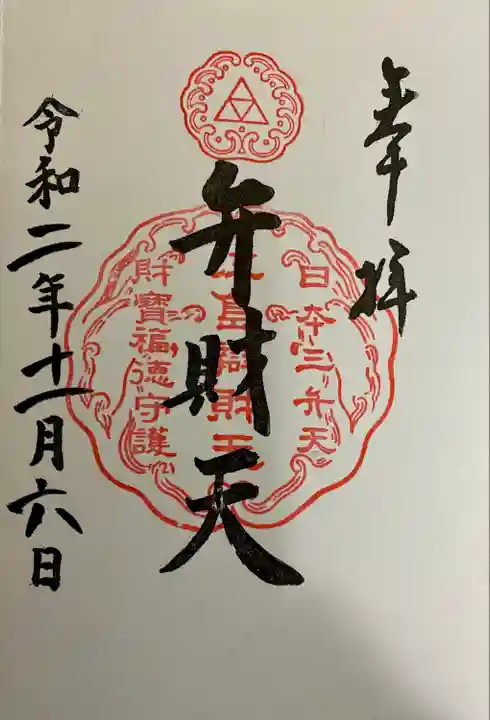 奉拝
日本三弁天
弁財天
財寶福德守護
令和二年十一月六日